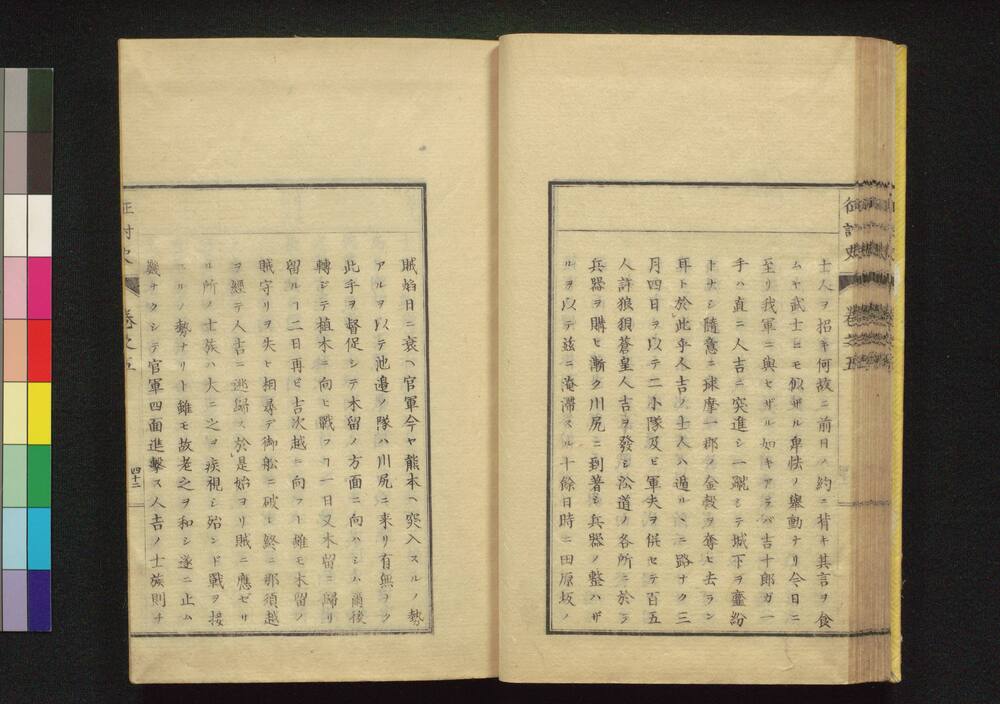 士人ヲ招キ何故ニ前日ノ約ニ背キ其言ヲ食
ムヤ武士ニモ似ザル卑怯ノ擧動ナリ今日ニ
至リ我軍ニ與セザル如キアラバ吉十郎ガ一
手ハ直ニ人吉ニ突進シ一蹴シテ城下ヲ齏粉
トナシ隨意ニ球摩一郡ノ金穀ヲ奪ヒ去ラン
耳ト於此乎人吉ノ士人ハ遁ルヽニ路ナク三
月四日ヲ以テ二小隊及ビ軍夫ヲ併セテ百五
人許狼狽蒼皇人吉ヲ發シ沿道ノ各所ニ於テ
兵器ヲ購ヒ漸ク川尻ニ到著シ兵器ノ整ハザ
ルヲ以テ玆ニ淹滯スル十餘日時ニ田原坂ノ
賊焰日ニ衰ヘ官軍今ヤ熊本ヘ突入スルノ勢
アルヲ以テ池邉ノ隊ハ川尻ニ来リ有無ナク
此手ヲ督促シテ木留ノ方面ニ向ハシム爾後
轉ジテ植木ニ向ヒ戰フヿ一日又木留ニ歸リ
留ルヿ二日再ビ吉次越ニ向フト雖モ木留ノ
賊守リヲ失ヒ相尋デ御船ニ破レ終ニ那須越
ヲ經テ人吉ニ逃歸ス於是始ヨリ賊ニ應ゼザ
ル所ノ士族ハ大ニ之ヲ疾視シ殆ンド戰ヲ接
スルノ勢ナリト雖モ故老之ヲ和シ遂ニ止ム
幾ナクシテ官軍四面進擊ス人吉ノ士族則チ
征討史
卷之五
四十二